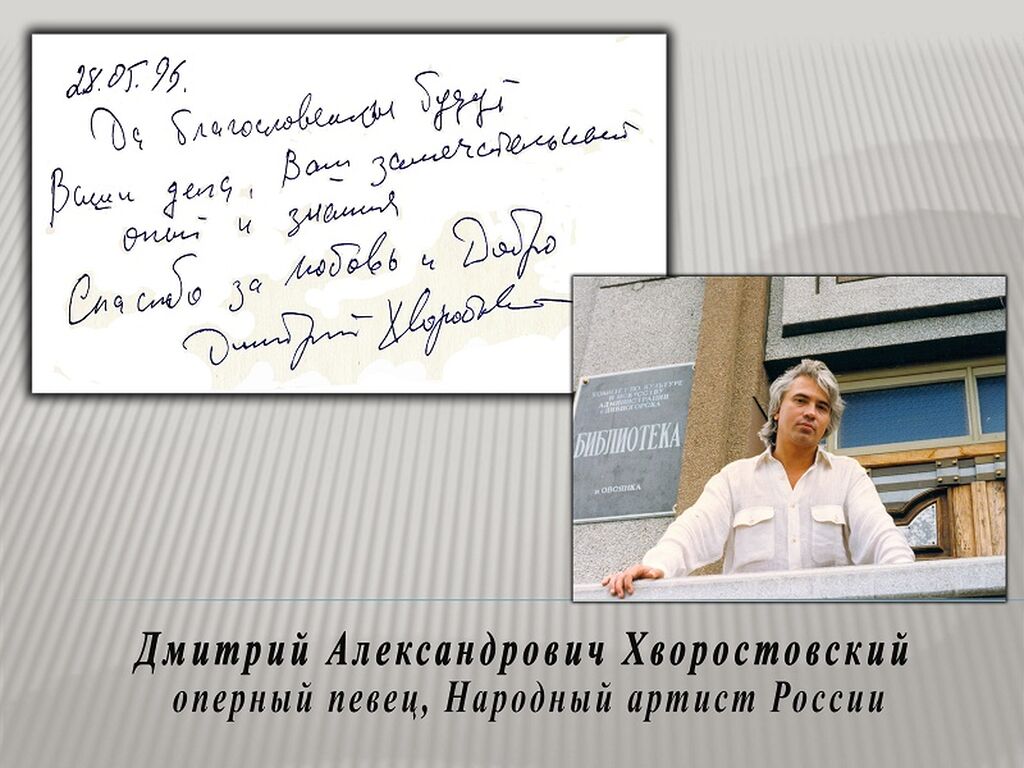 28.05.95.
Да благословенны будут
Ваши дела, Ваш замечательный
опыт и знания
Спасибо за любовь и Добро
Дмитрий Хворостовский
КОМИТЕТ ПО КУЛЬТУРЕ
И ИСКУССТВУ
АДМИНИСТРАЦИИ
г. ДИВНОГОРСКА
БИБЛИОТЕКА
п ОВСЯНКА
Дмитрий Александрович Хворостовский
оперный певец, Народный артист России